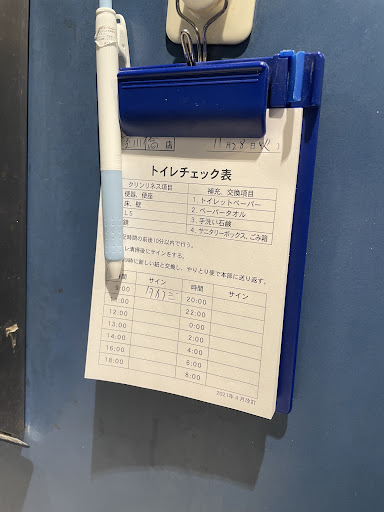 川橋 店 11月28日(火)
トイレチェック表
クリンリネス項目 補充、交換項目
便器、便座 1、トイレットペーパー
床、壁 2、ペーパータオル
3、手洗い石鹸
鏡 4、サニタリーボックス、ごみ箱
時間の前後10分以内で行う。
清掃後にサインをする。
時に新しい紙と交換し、やりとり便で本部に送り返す。
サイン 時間 サイン
タカノ 20:00
22:00
12:00 0:00
13:00 2:00
14:00 4:00
16:00 6:00
18:00 8:00